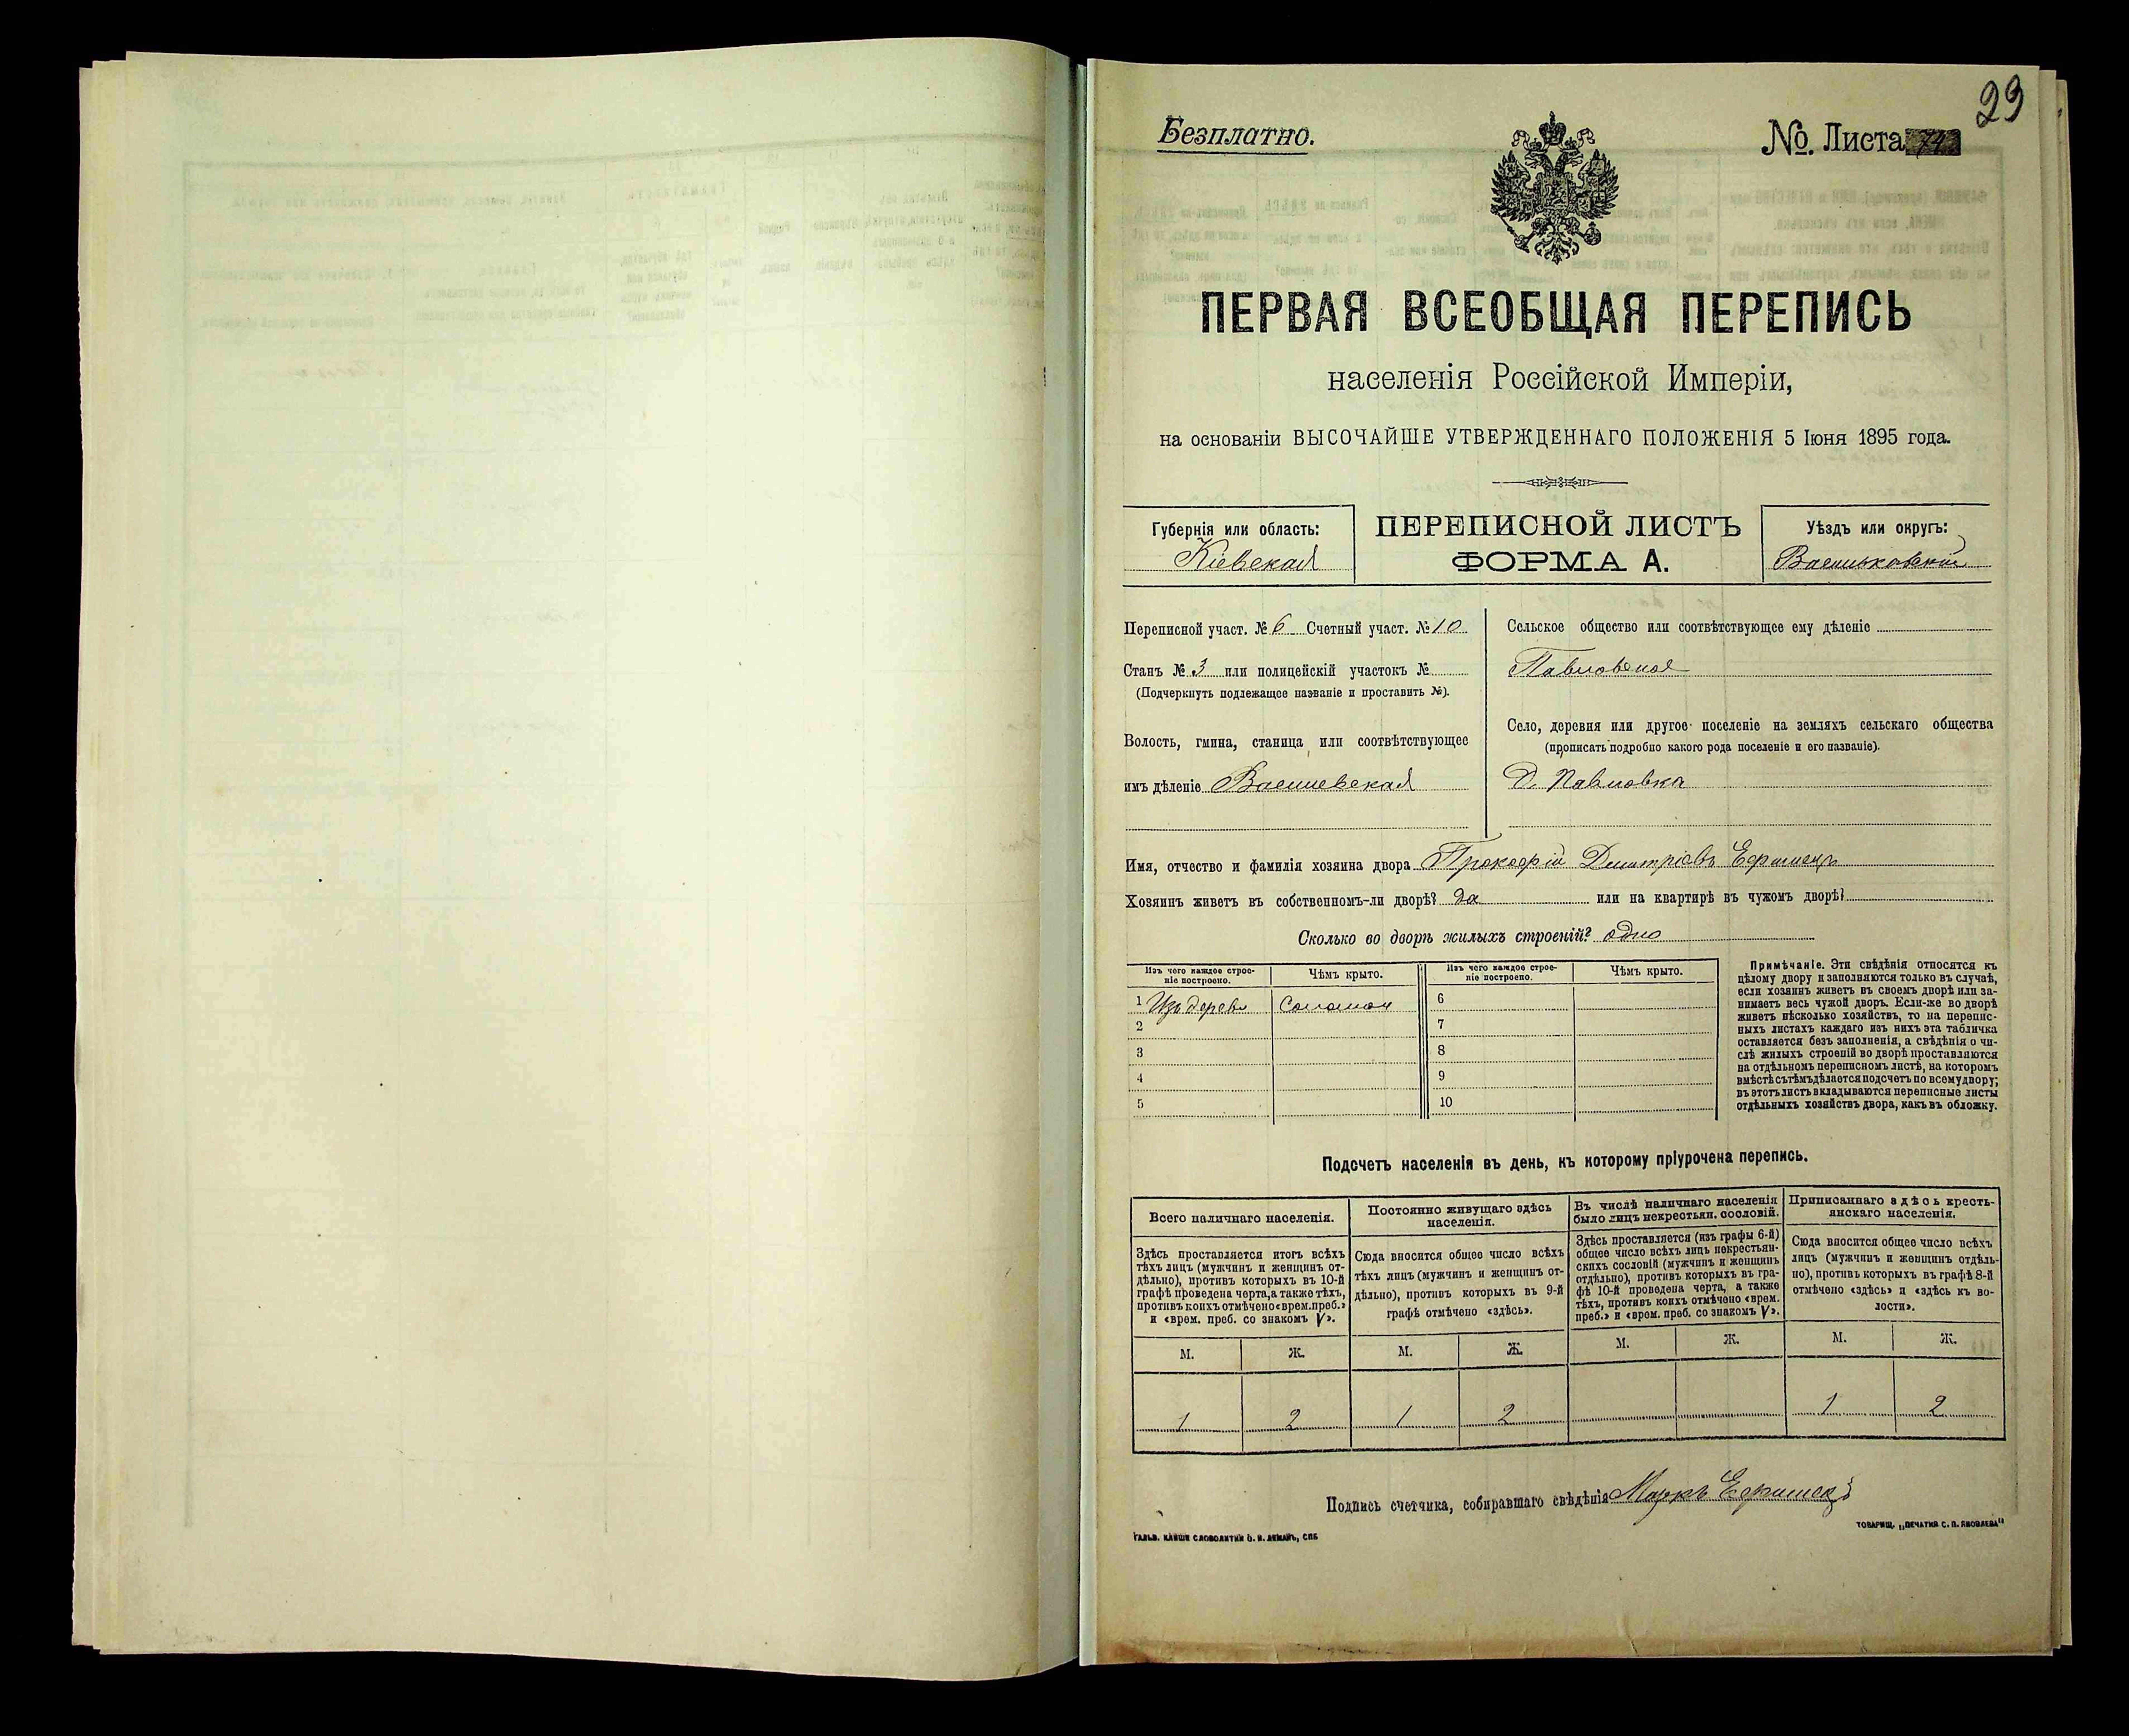 29
Безплатно.
№. Листа 74
ПЕРВАЯ ВСЕОБЩАЯ ПЕРЕПИСЬ
населенія Россійской Имперіи,
на основаніи ВЫСОЧАЙШЕ УТВЕРЖДЕННАГО ПОЛОЖЕНІЯ 5 Іюня 1895 года.
Губернія или область:
Кіевская
ПЕРЕПИСНОЙ ЛИСТЪ
ФОРМА А.
Уѣздъ или округъ:
Васильковскій
Переписной участ. № 6 Счетный участ. № 10
Станъ № 3 или полицейскій участокъ №
(Подчеркнуть подлежащее названіе и проставить №).
Волость, гмина, станица или соотвѣтствующее
имъ дѣленіе Васильевская
Сельское общество или соотвѣтствующее ему дѣленіе
Павловское
Село, деревня или другое поселеніе на земляхъ сельскаго общества
(прописать подробно какого рода поселеніе и его названіе).
Д. Павловка
Имя, отчество и фамилія хозяина двора Прокофій Дмитріевъ
Хозяинъ живетъ въ собственномъ-ли дворѣ? да или на квартирѣ въ чужомъ дворѣ?
Сколько во дворѣ жилыхъ строеній? одно
Изъ чего каждое строе-
ніе построено.
Чѣмъ крыто.
Изъ чего каждое строе-
ніе построено.
Чѣмъ крыто.
1 Изъ дерева Соломой 6
2 7
3 8
4 9
5 10
Примѣчаніе. Эти свѣдѣнія относятся къ
цѣлому двору и заполняются только въ случаѣ,
если хозяинъ живетъ въ своемъ дворѣ или за-
нимаетъ весь чужой дворъ. Если-же во дворѣ
живетъ нѣсколько хозяйствъ, то на перепис-
ныхъ листахъ каждаго изъ нихъ эта табличка
оставляется безъ заполненія, а свѣдѣнія о чи-
слѣ жилыхъ строеній во дворѣ проставляются
на отдѣльномъ переписномъ листѣ, на которомъ
вмѣстѣ съ тѣмъ дѣлается подсчетъ по всему двору;
въ этотъ листъ вкладываются переписные листы
отдѣльныхъ хозяйствъ двора, какъ въ обложку.
Подсчетъ населенія въ день, къ которому пріурочена перепись.
Всего наличнаго населенія.
Здѣсь проставляется итогъ всѣхъ
тѣхъ лицъ (мужчинъ и женщинъ от-
дѣльно), противъ которыхъ въ 10-й
графѣ проведена черта, а также тѣхъ,
противъ коихъ отмѣчено «врем. преб.»
и «врем. преб. со знакомъ V».
Постоянно живущаго здѣсь
населенія.
Сюда вносится общее число всѣхъ
тѣхъ лицъ (мужчинъ и женщинъ от-
дѣльно), противъ которыхъ въ 9-й
графѣ отмѣчено «здѣсь».
Въ числѣ наличнаго населенія
было лицъ некрестьян. сословій.
Здѣсь проставляется (изъ графы 6-й)
общее число всѣхъ лицъ некрестьян-
скихъ сословій (мужчинъ и женщинъ
отдѣльно), противъ которыхъ въ гра-
фѣ 10-й проведена черта, а также
тѣхъ, противъ коихъ отмѣчено «врем.
преб.» и «врем. преб. со знакомъ V».
Приписаннаго здѣсь кресть-
янскаго населенія.
Сюда вносится общее число всѣхъ
лицъ (мужчинъ и женщинъ отдѣль-
но), противъ которыхъ въ графѣ 8-й
отмѣчено «здѣсь» и «здѣсь къ во-
лости».
М. Ж. М. Ж. М. Ж. М. Ж.
1 2 1 2 1 2
Подпись счетчика, собиравшаго свѣдѣнія Маркъ
ГАЛЬВ. КЛИШЕ СЛОВОЛИТНИ О. И. ЛЕМАНЪ, СПБ
ТОВАРИЩ. „ПЕЧАТНЯ С. П. ЯКОВЛЕВА“